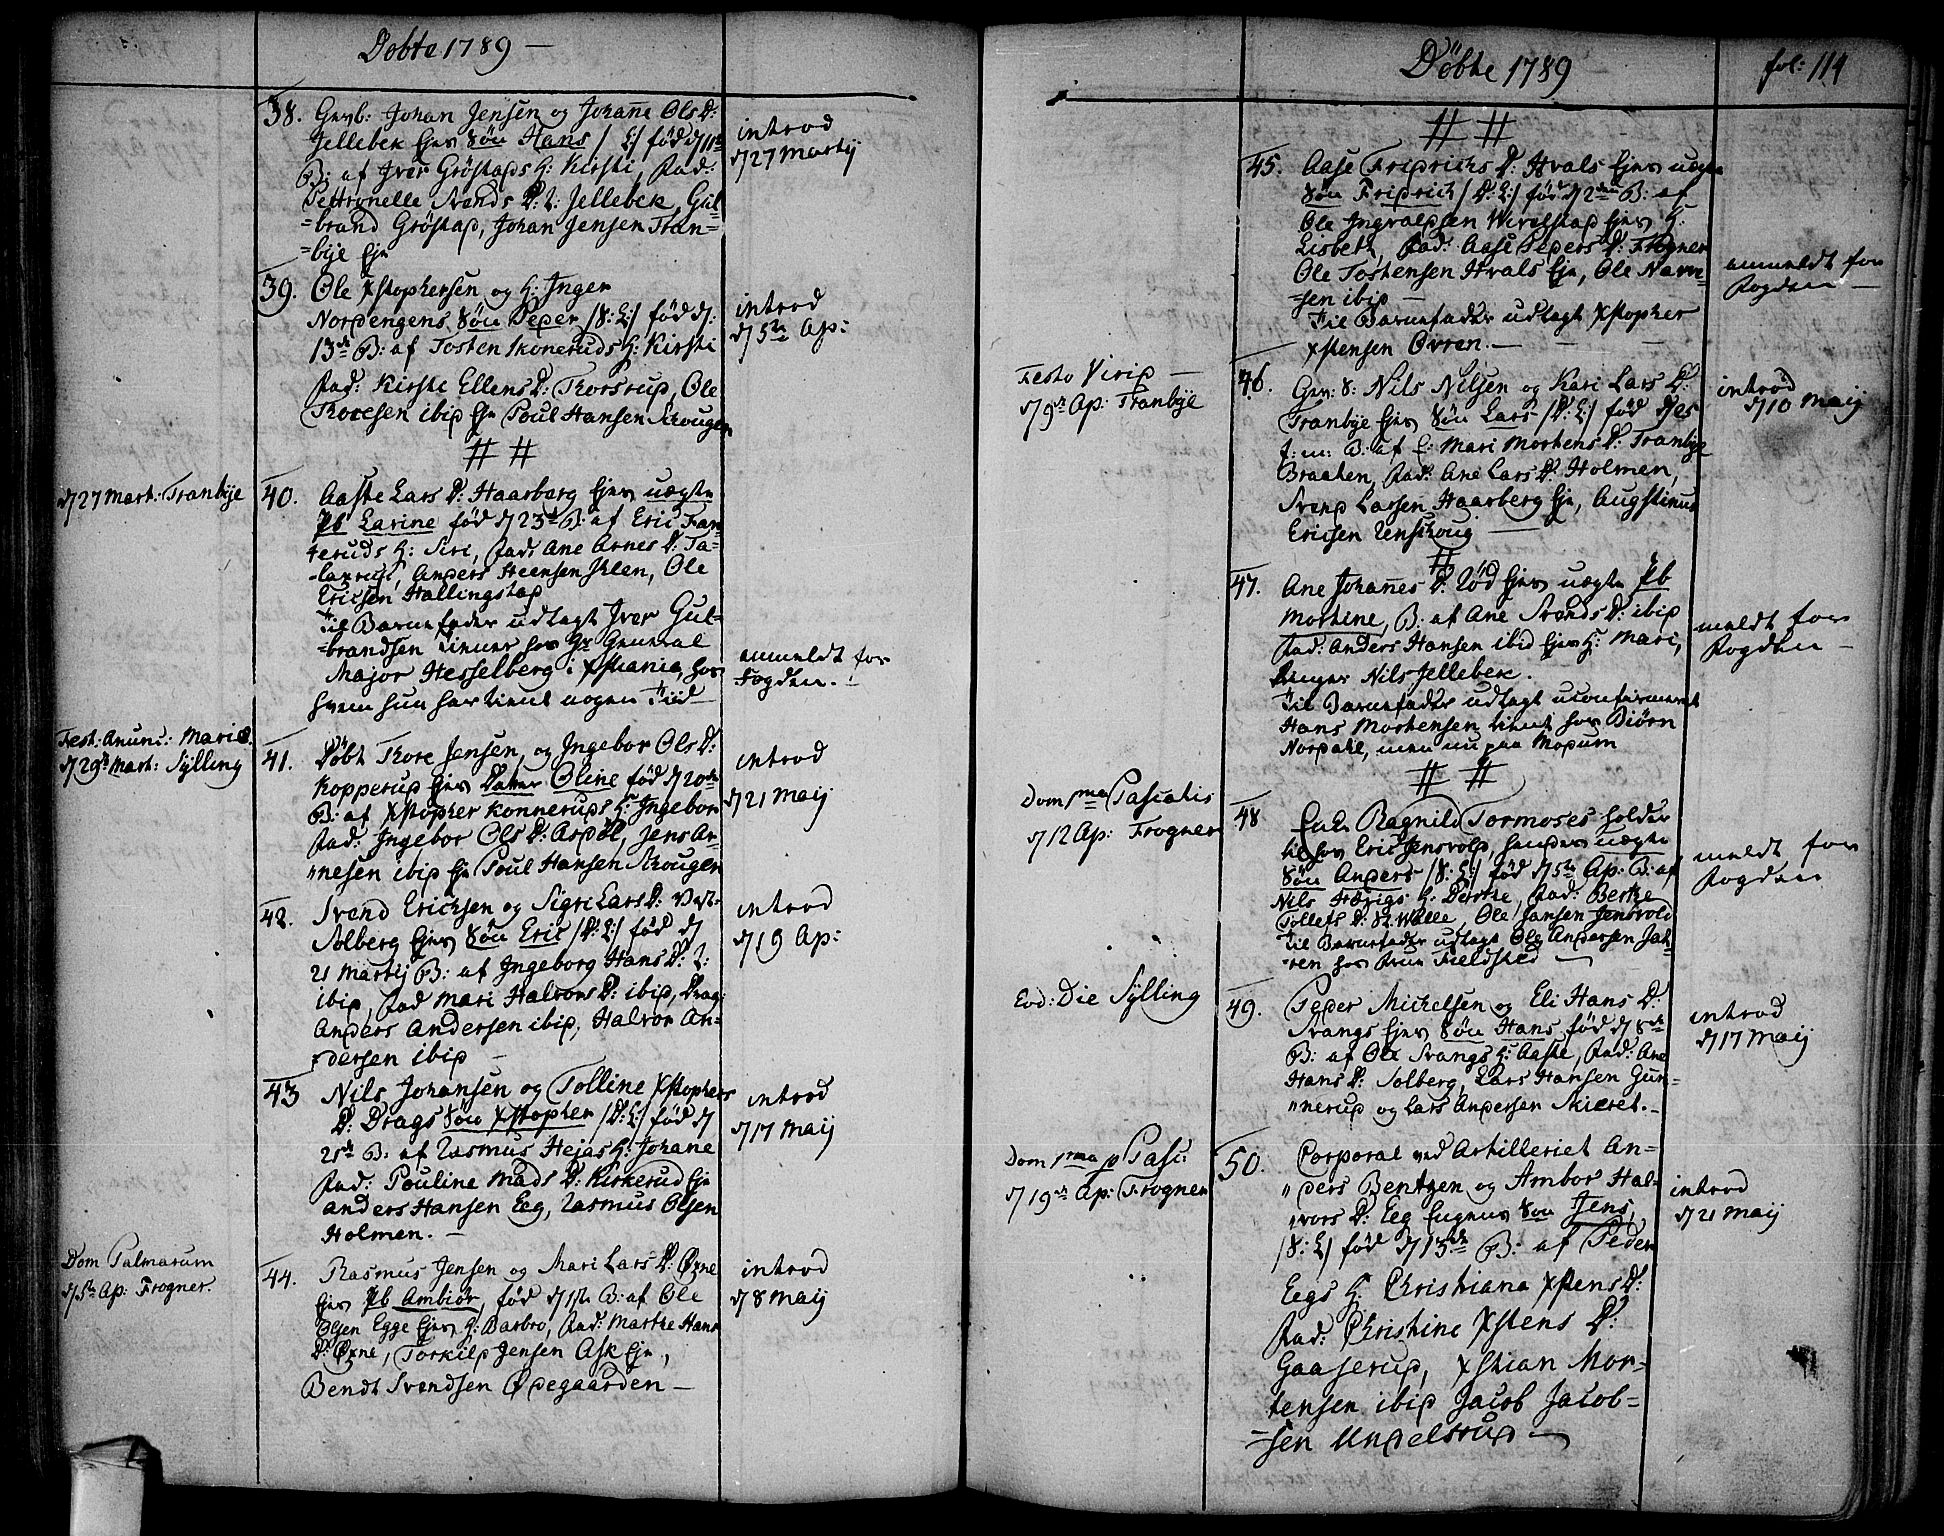 Döbte 1789 —
38. Gevb: Johan Jensen og Johañe Ols D:
Jellebek Ejes Søn Hans / :/ fød d 11te
B: af Iver Gröstads H: Kirsti, Fad:
Pettronelle Svends D: Jellebek, Gul-
=brand Gröstad, Johan Jensen Tran-
=bye Eje
introd
d 27 Martij
39. Ole Xstophersen og H: Inger
Nordengens Søn Peder /8: :/ fød d:
13de B: af Tosten Skoneruds H: Kirsti
Fad: Kirste Ellens D: Thorsrud, Ole
Thoresen ibid Eje Poul Hansen Skougen
introd
d 5te Ap:
# #
d 27 Mart: Tranbye
40. Aaste Lars D: Haarberg Ejes uægte
Pb Larine fød d 23de B: af Eric Fan-
teruds H: Siri, Fad: Ane Arnes D: Ta-
Anders Steensen Ihlen, Ole
Ericsen Hallingstad
Til Barnefader udlagt Iver Gul-
=brandsen tiener hos Hr General
Major Hesselberg i Xstiania, hos
hvem hun har tient nogen Tiid —
anmeldt for
Fogden. —
Fest: Anunc: Mariæ
d 29de Mart: Sylling
41. Döbt Thore Jensen, og Ingebor Ols D:
Kopperud Ejes Dater Oline fød d 20de
B: af Xstopher Konneruds H: Ingebor
Fad: Ingebor Ols D: Asdöl, Jens Ar-
"nesen ibid Eje Poul Hansen Skougen
introd
d 21 Maij
42. Svend Erichsen og Sigri Lars D: Vest-
Solberg Ejes Søn Eric /D: :/ fød d
21 Martij B: af Ingeborg Hans D:
ibid, Fad Mari Halvors D: ibid, Drag:
Anders Andersen ibid, Halvor An-
dersen ibid —
introd
d 19 Ap:
43 Nils Johansen og Tolline Xstophers
D: Drags Søn Xstopher /D: :/ fød d
21de B: af Rasmus Hejas H: Johane
Fad: Pouline Mads D: Kirkerud Eje
Anders Hansen Eeg, Rasmus Olsen
Holmen. —
introd
d 17 Maij
Dom Palmarum
d 5te Ap: Frogner.
44. Rasmus Jensen og Mari Lars D: Øxne
Ejes Pb Ambiör, fød d 1ste B: af Ole
Olsen Egge Ejes H: Barbro, Fad: Marthe Hans
D: Øxne, Torkild Jensen Ask Eje,
Bendt Svendsen Ødegaarden —
introd
d 8 Maij
Döbte 1789
fol: 114
# #
45. Aase Fridrichs D: Hvals Ejes uægte
Søn Fridrich /D: :/ fød d 2den B: af
Ole Ingvaldsen Wivelstad Ejes H:
Lisbeth, Fad: Aase Peders D: Frogner
Ole Tostensen Hvals Eje, Ole Narve-
=sen ibid —
Til Barnefader udlagt Xstopher
Xstensen Övren. — — —
anmeldt for
Fogden —
Festo Virid —
d 9de Ap: Tranbye
46. Gevr: Nils Nilsen og Kari Lars D:
Tranbye Ejes Søn Lars /D: :/ fød d 25
f: m: B: af H: Mari Mortens D: Tranbye
Braaten, Fad: Ane Lars D: Holmen,
Svend Larsen Haarberg Eje, Augstinus
Ericsen Renskoug —
introd
d 10 Maij
#
47. Ane Johañes D: Rød Ejes uægte Pb
Mortine, B: af Ane Svends D: ibid
Fad: Anders Hansen ibid Ejes H: Mari,
Nils Jellebek.
Til Barnefader udlagt uconfirmeret
Hans Mortensen, tient hos Biörn
Nordahl, men nu paa Modum
meldt for
Fogden —
# #
Dom 1ma Pascatis
d 12 Ap: Frogner
48 Enke Ragnild Tormoses holder
til hos Eric Jensvold, hendes uægte
Søn Anders /8: :/ fød d 5te Ap: B: af
Nils H: Dorthe, Fad: Berthe
Tollefs D: St. Walle, Ole Hansen Jensvold
Til Barnefader udlagt Ole Andersen
hos Fieldsted —
meldt for
Fogden
Eod: Die Sylling
49. Peder Michelsen og Eli Hans D:
Svangs Ejes Søn Hans fød d 8de
B: af Ole Svangs H: Aaste, Fad: Ane
Hans D: Solberg, Lars Hansen Gun-
"nerud og Lars Andersen Skieret. —
introd
d 17 Maij
Dom 1ma p Pasc:
d 19de Ap: Frogner
50. Corporal ved Artilleriet An-
"ders Bentzen og Ambor Hal-
"vors D: Eeg Eugenes Søn Jens,
/8: :/ fød d 13de B: af Peder
Eegs H: Christiana Xstens D:
Fad: Christine Xstens D:
Gaaserud, Xstian Mor-
tensen ibid Jacob Jacob-
=sen Undelstrud —
introd
d 21 Maij